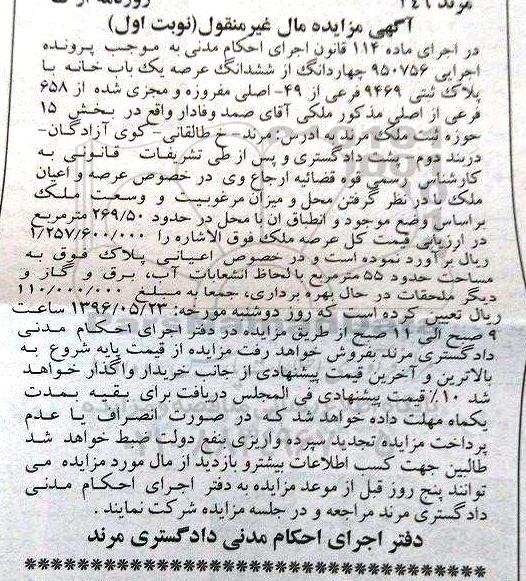 مرند ٣٤٦
آگهی مزایده مال غیرمنقول(نوبت اول)
در اجرای ماده ١١٤ قانون اجرای احکام مدنی به موجب پرونده
اجرایی ٩٥٠٧٥٦ چهاردانگ از ششدانگ عرصه یک باب خانه با
پلاک ثبتی ٩٤٦٩ فرعی از ٤٩- اصلی مفروزه و مجزی شده از ٦٥٨
فرعی از اصلی مذکور ملکی آقای صمد وفادار واقع در بخش ١٥
حوزه ثبت ملک مرند به ادرس: مرند- خ طالقانی- کوی آزادگان-
دربند دوم- پشت دادگستری و پس از طی تشریفات قانونی به
کارشناس رسمی قوه قضائیه ارجاع وی در خصوص عرصه و اعیان
ملک با در نظر گرفتن محل و میزان مرغوبیت و وسعت ملک
براساس وضع موجود و انطباق ان با محل در حدود ٢٦٩/٥٠ مترمربع
در ارزیابی قیمت کل عرصه ملک فوق الاشاره را ١/٢٥٧/٦٠٠/٠٠٠
ریال برآورد نموده است و در خصوص اعیانی پلاک فوق به
مساحت حدود ٥٥ مترمربع با لحاظ انشعابات آب، برق و گاز و
دیگر ملحقات در حال بهره برداری، جمعا به مبلغ ١١٠/٠٠٠/٠٠٠
ریال تعیین کرده است که روز دوشنبه مورخه: ١٣٩٦/٠٥/٢٣ ساعت
٩ صبح الی ١١ صبح از طریق مزایده در دفتر اجرای احکام مدنی
دادگستری مرند بفروش خواهد رفت مزایده از قیمت پایه شروع به
بالاترین و آخرین قیمت پیشنهادی از جانب خریدار واگذار خواهد
شد ١٠٪ قیمت پیشنهادی فی المجلس دریافت برای بقیه بمدت
یکماه مهلت داده خواهد شد که در صورت انصراف یا عدم
پرداخت مزایده تجدید سپرده واریزی بنفع دولت ضبط خواهد شد
طالبین جهت کسب اطلاعات بیشترو بازدید از مال مورد مزایده می
توانند پنج روز قبل از موعد مزایده به دفتر اجرای احکام مدنی
دادگستری مرند مراجعه و در جلسه مزایده شرکت نمایند.
دفتر اجرای احکام مدنی دادگستری مرند